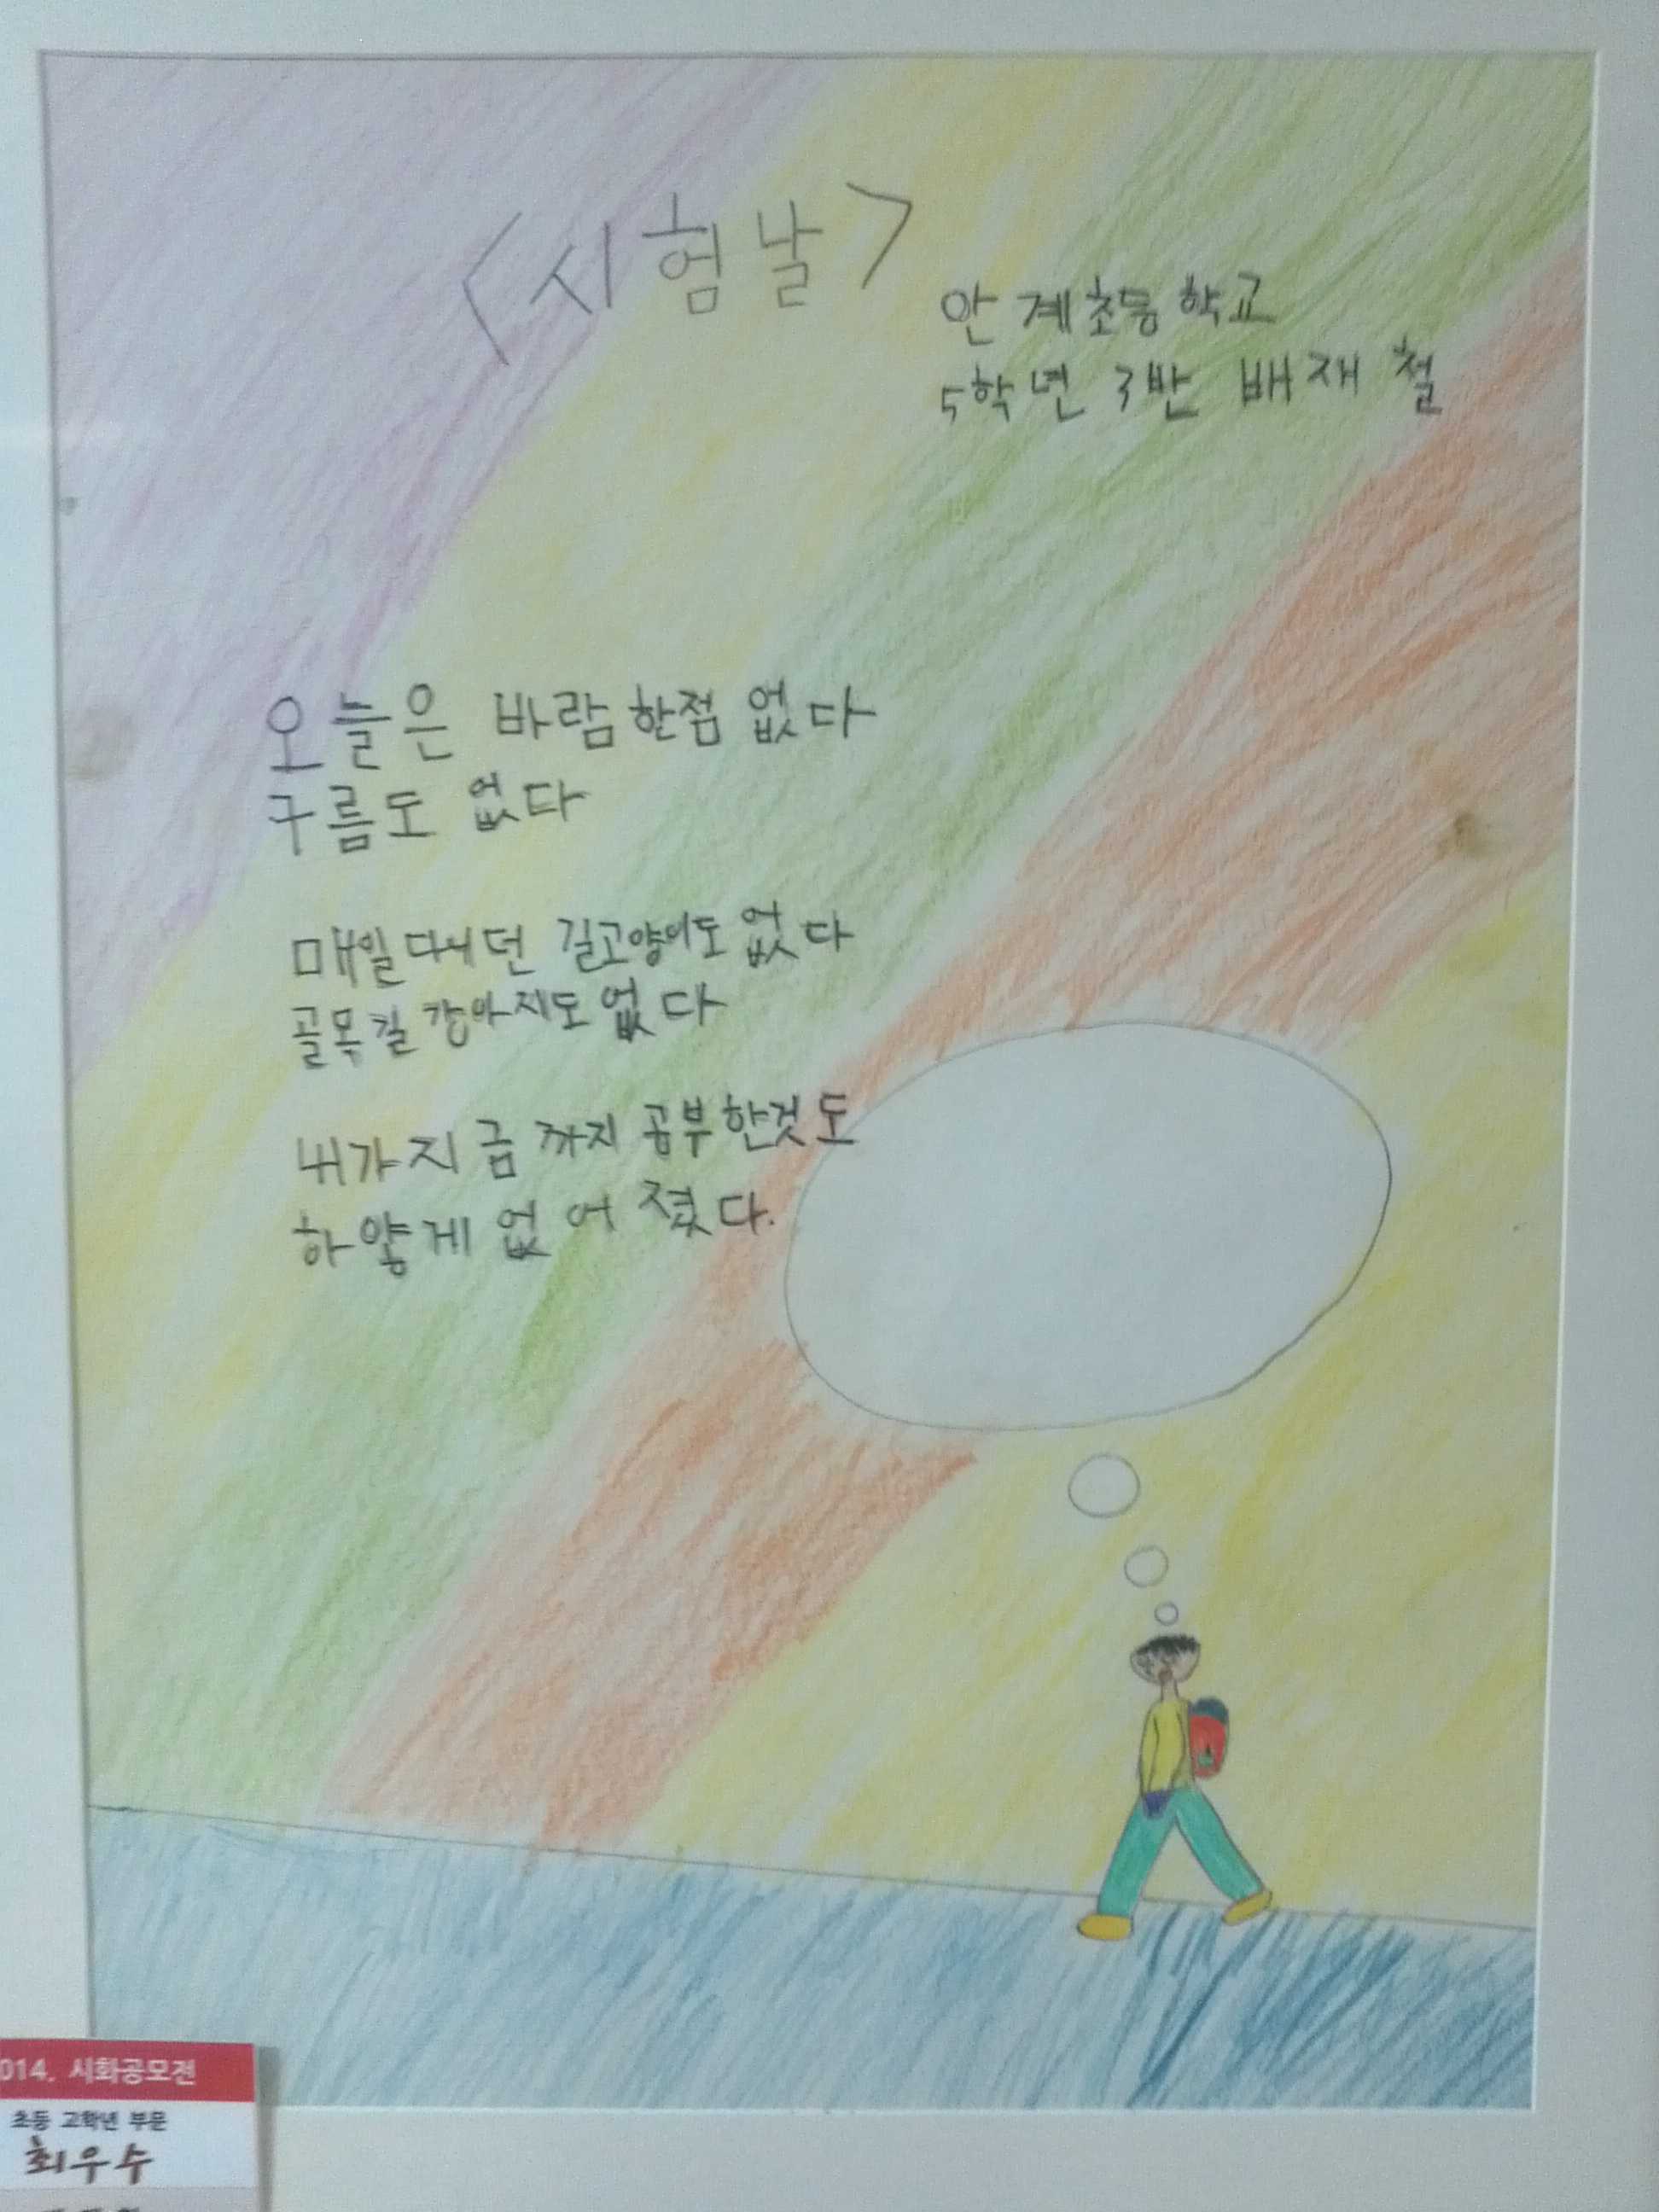 <시험날>
안계초등학교
5학년 3반 배재철
오늘은 바람한점 없다
구름도 없다
매일 다니던 길고양이도 없다
골목길 강아지도 없다
내가 지금까지 공부한것도
하얗게 없어 졌다.
014. 시화공모전
초등 고학년 부문
최우수